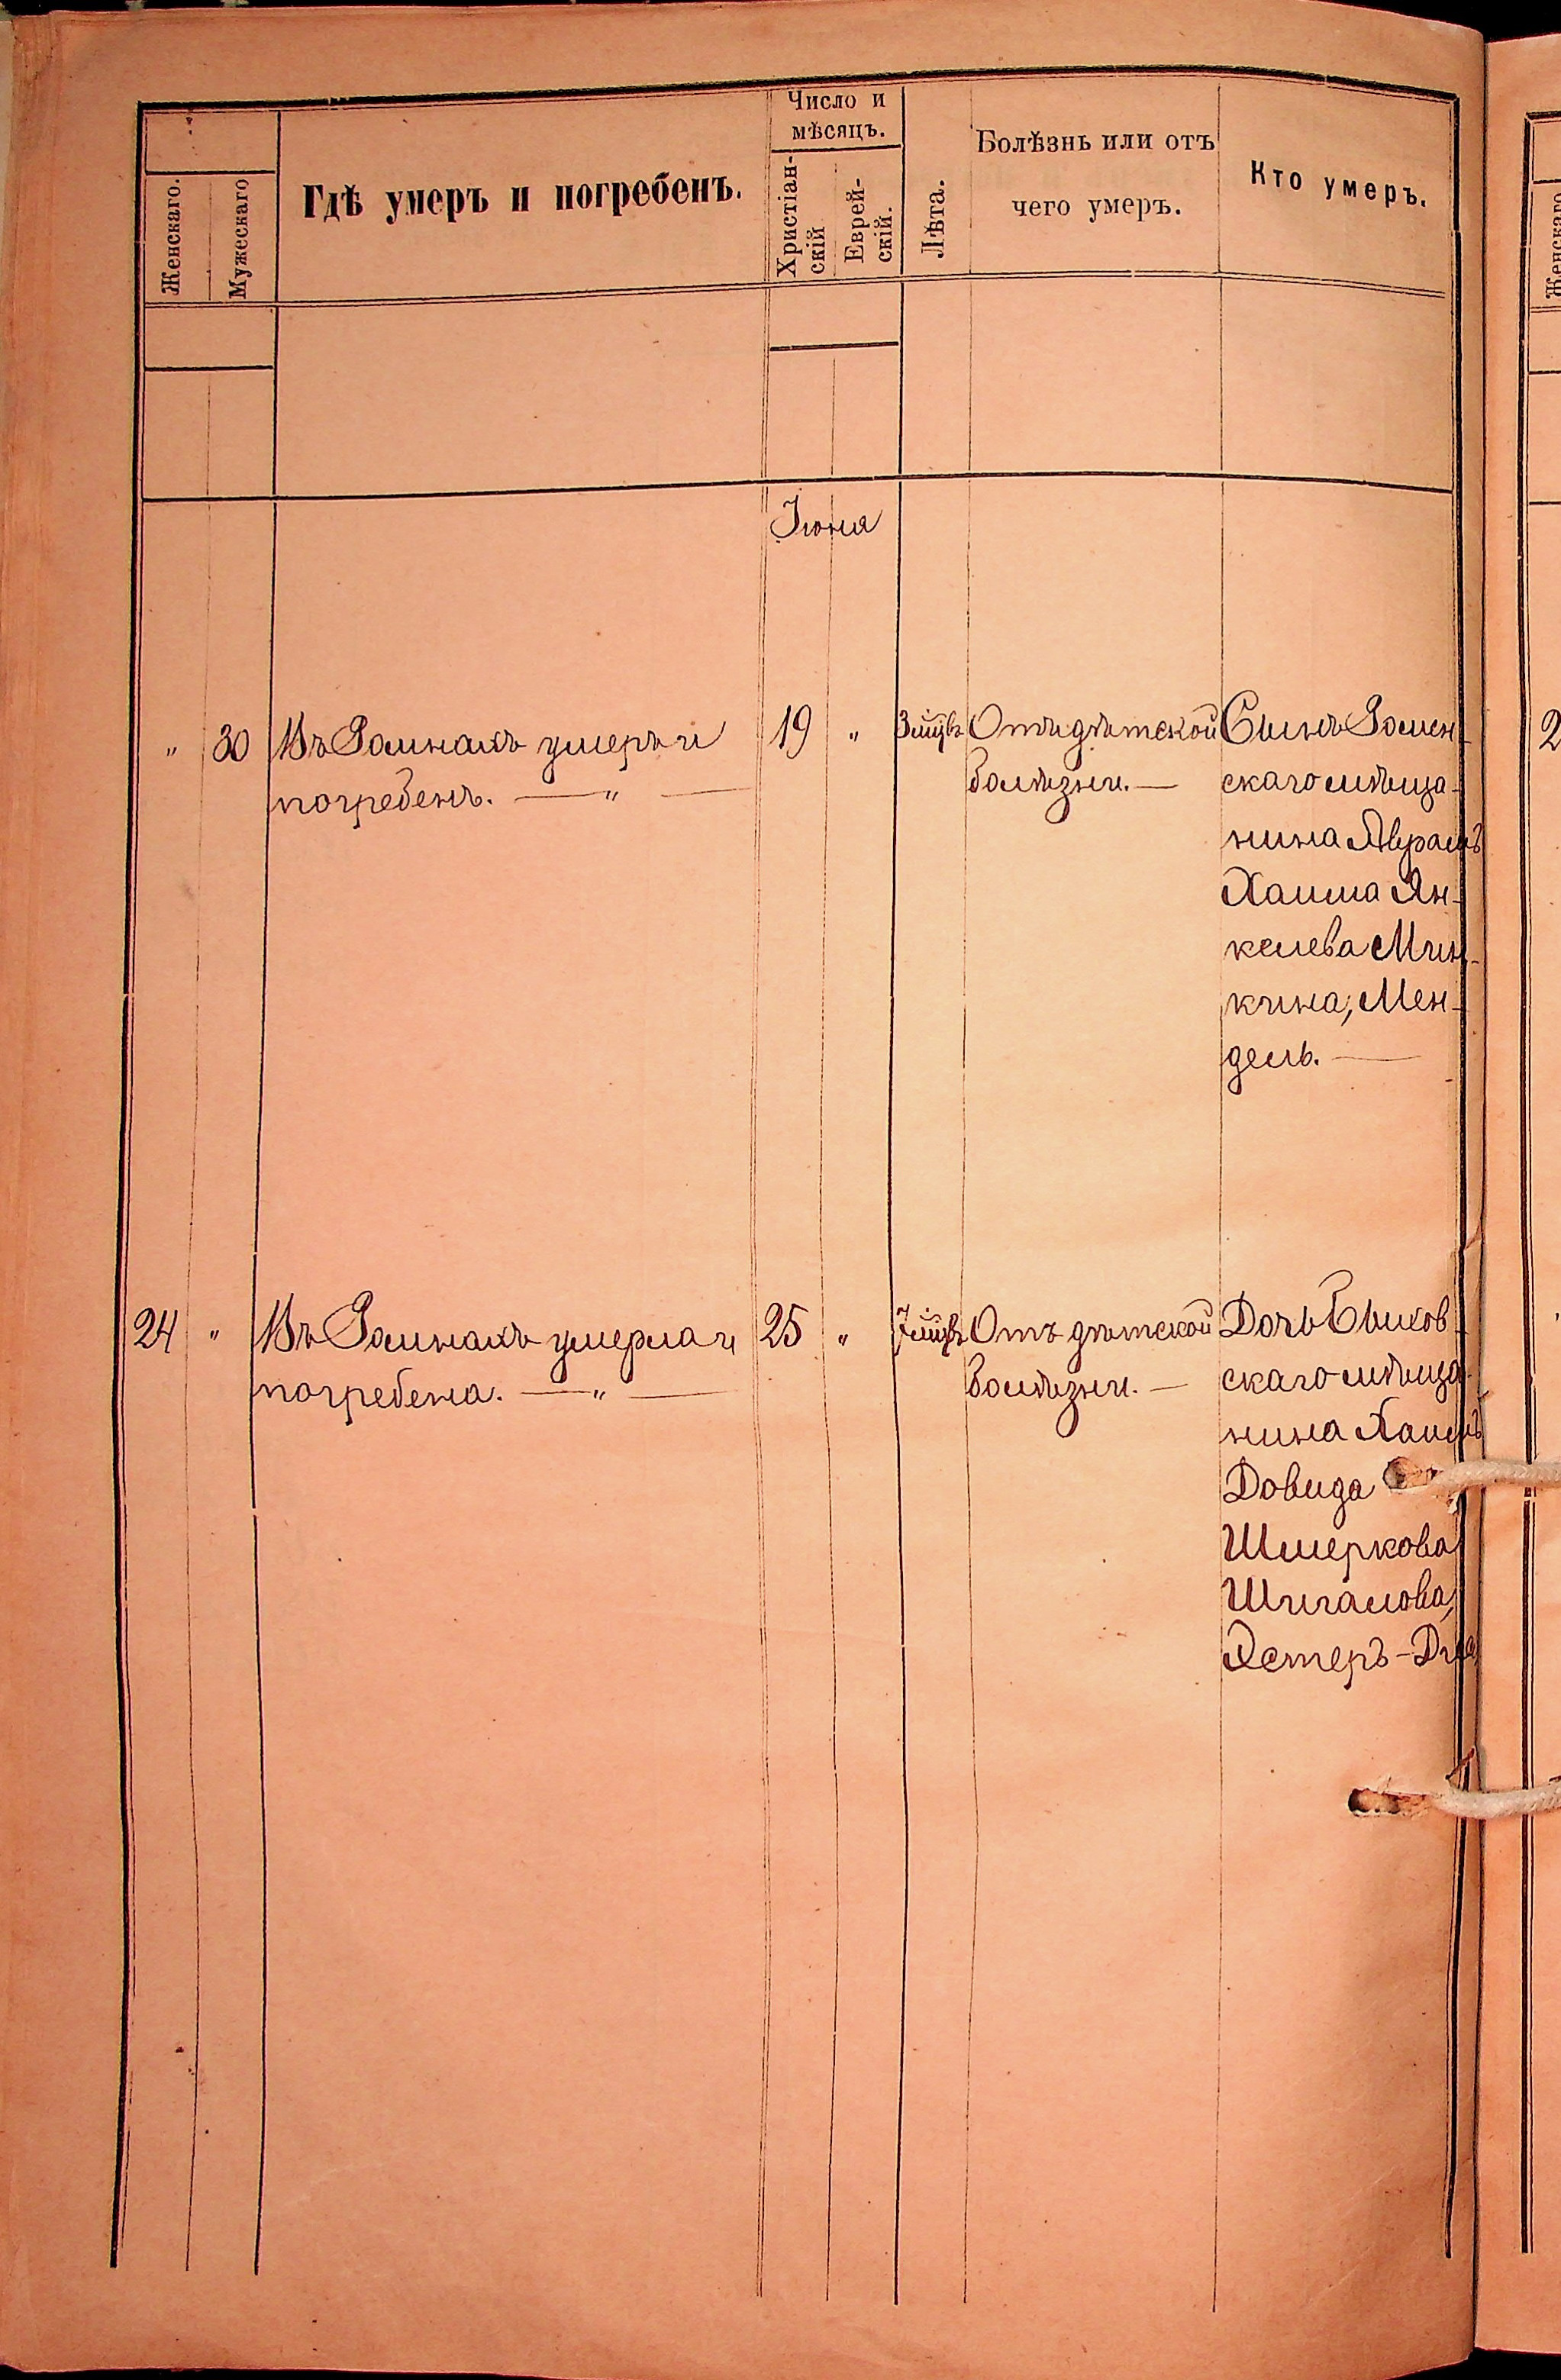 Женскаго.
Мужескаго
Гдѣ умеръ и погребенъ.
Число и
мѣсяцъ.
Христіан-
скій
Еврей-
скій.
Лѣта.
Болѣзнь или отъ
чего умеръ.
Кто умеръ.
Іюня
" 30 Въ Ромнахъ умеръ и
погребенъ. — " —
19 " 3 мцвъ
Отъ дѣтской
болѣзни. —
Сынъ Ромен-
скаго мѣща-
нина Аврамъ
Хаима Ян-
келева Мин-
кина, Мен-
дель. —
24 " Въ Ромнахъ умерла и
погребена. — " —
25 " 7 мцвъ
Отъ дѣтской
болѣзни. —
Дочь Быхов-
скаго мѣща-
нина Хаимъ
Довида
Шмеркова
Шигалова,
Эстеръ-
Женскаго
2